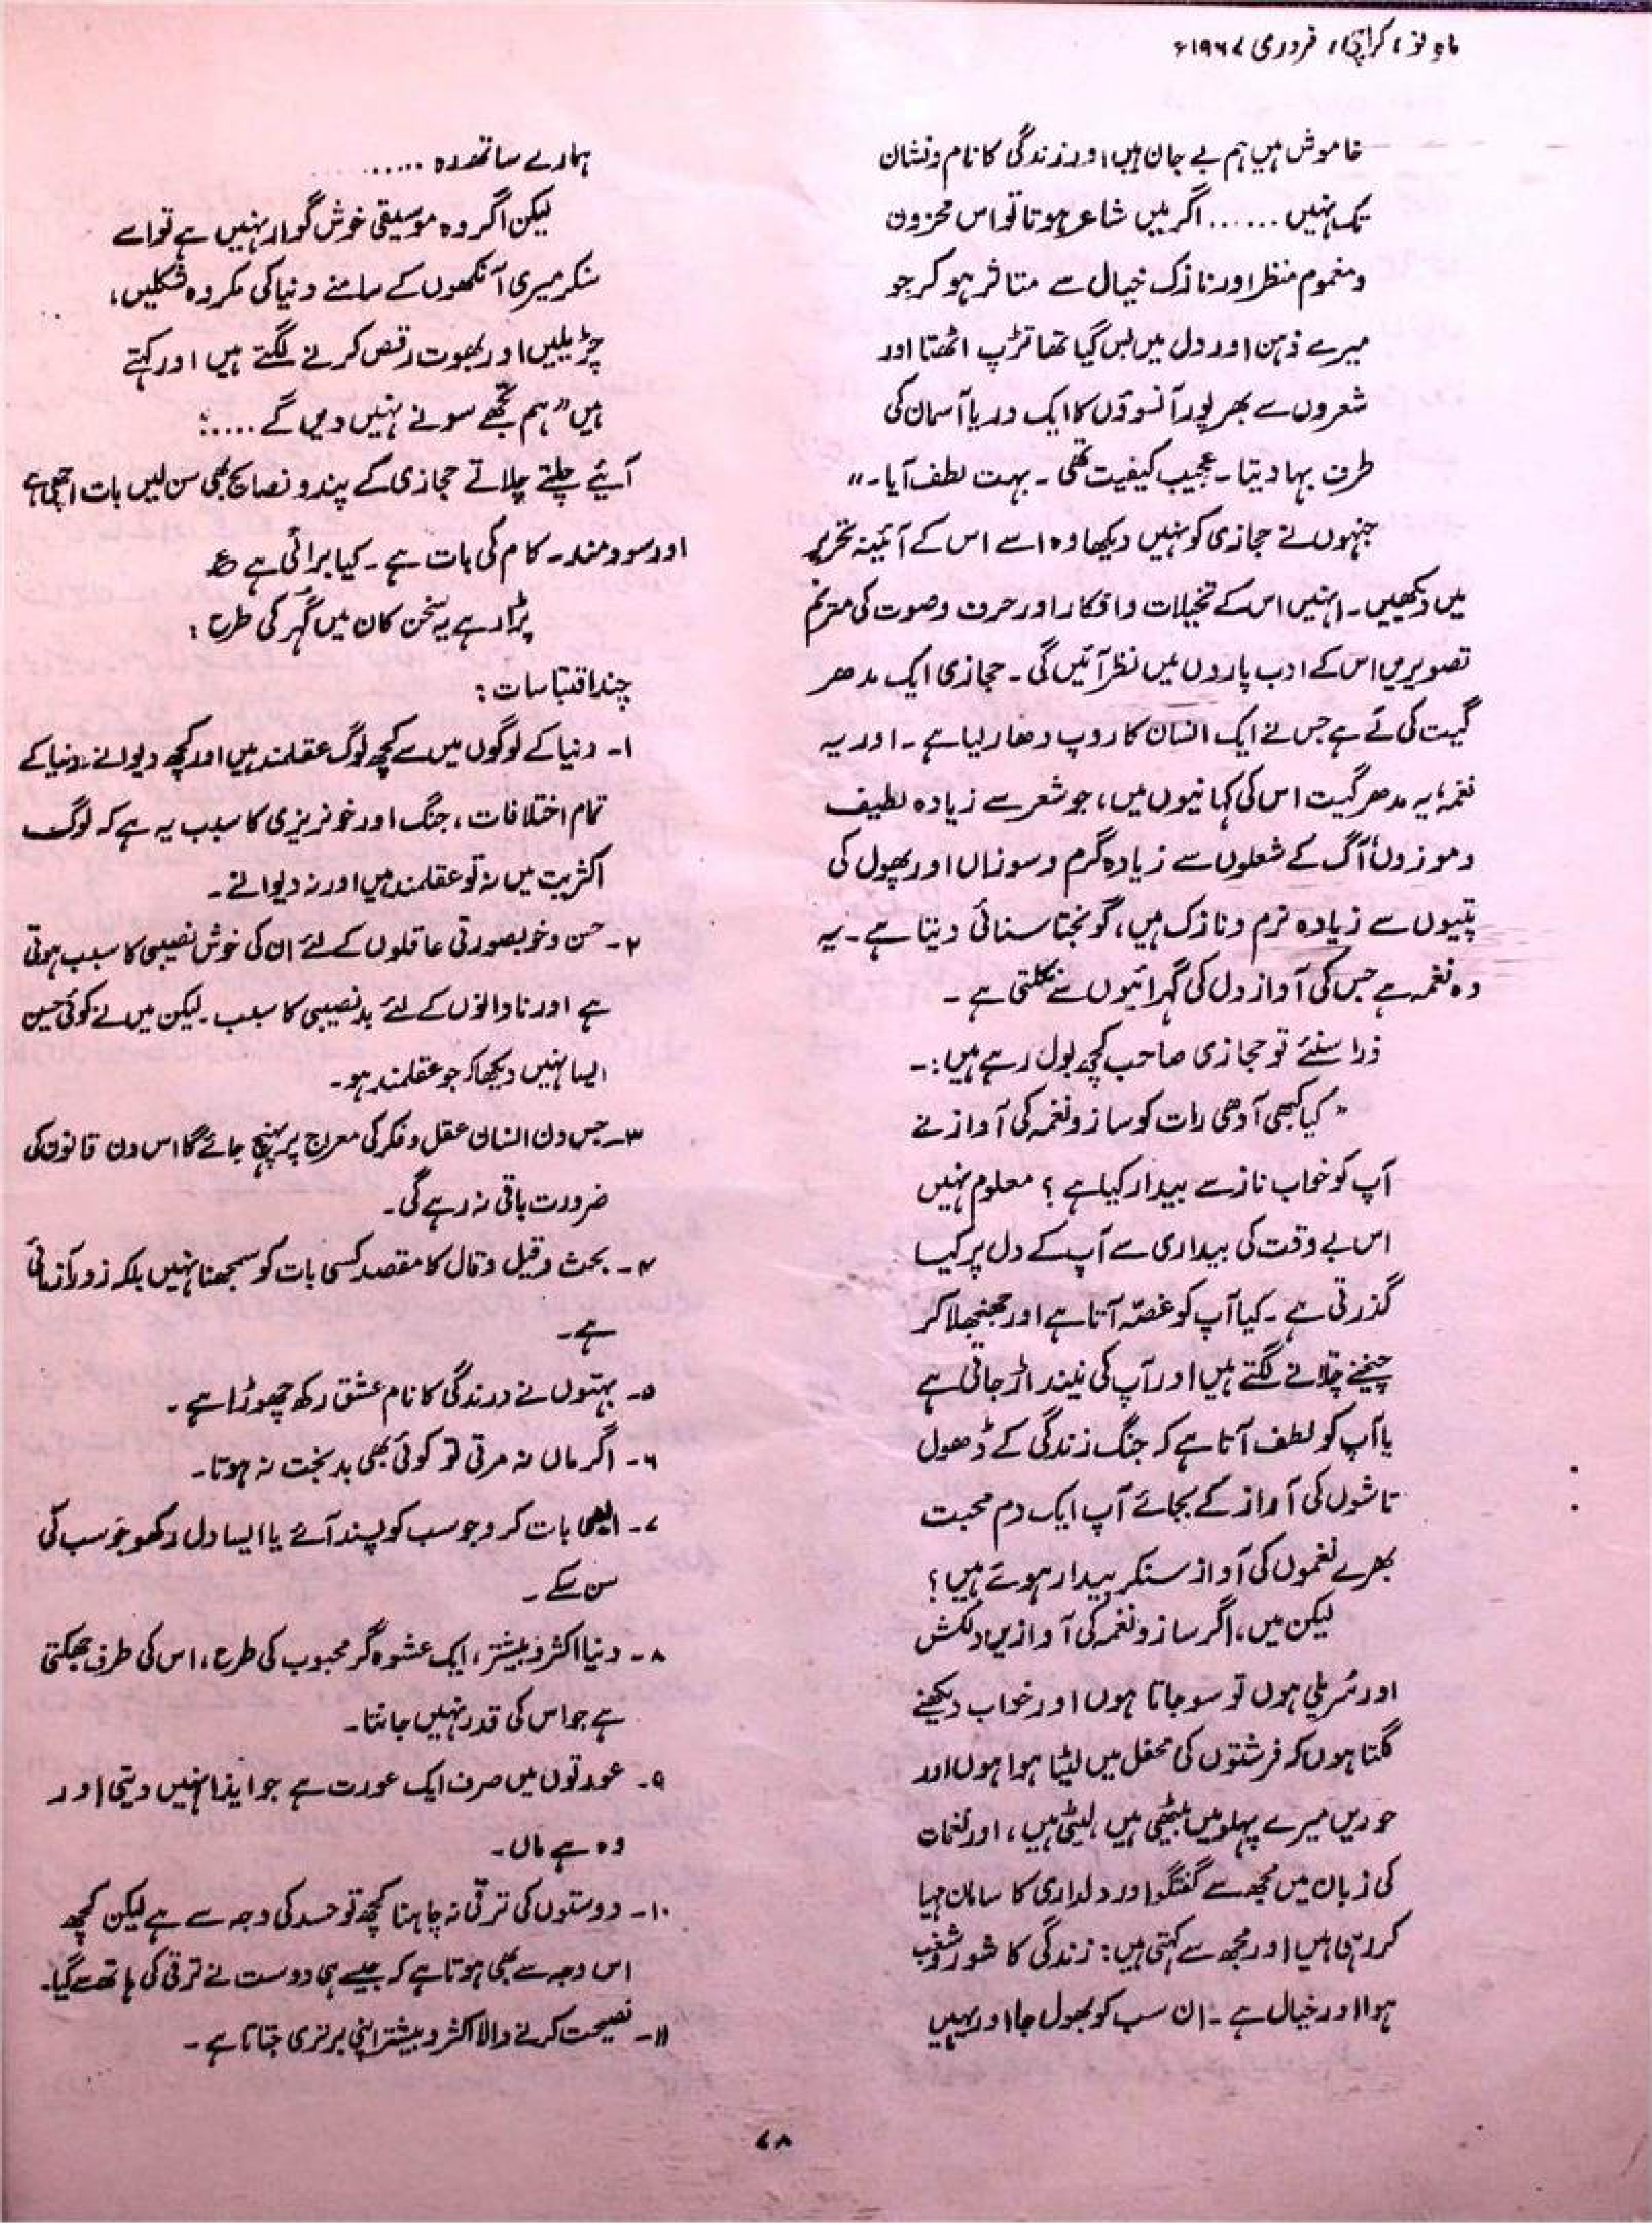 ماہِ نو، کراچی، فروری ۱۹۶۷ء
خاموش ہیں ہم بے جان ہیں، اور زندگی کا نام و نشان
تک نہیں ...... اگر میں شاعر ہوتا تو اس محزون
و مغموم منظر اور نازک خیال سے متاثر ہو کر جو
میرے ذہن اور دل میں بس گیا تھا تڑپ اٹھتا اور
شعروں سے بھرپور آنسوؤں کا ایک دریا آسمان کی
طرف بہا دیتا۔ عجیب کیفیت تھی۔ بہت لطف آیا۔"
جنہوں نے حجازی کو نہیں دیکھا وہ اسے اس کے آئینہ تحریر
میں دیکھیں۔ انہیں اس کے تخیلات و افکار اور حرف و صوت کی مترنم
تصویریں اس کے ادب پاروں میں نظر آئیں گی۔ حجازی ایک مدھر
گیت کی لَے ہے جس نے ایک انسان کا روپ دھار لیا ہے۔ اور یہ
نغمہ، یہ مدھر گیت اس کی کہانیوں میں، جو شعر سے زیادہ لطیف
و موزوں، آگ کے شعلوں سے زیادہ گرم و سوزاں اور پھول کی
پتیوں سے زیادہ نرم و نازک ہیں، گونجتا سنائی دیتا ہے۔ یہ
وہ نغمہ ہے جس کی آواز دل کی گہرائیوں سے نکلتی ہے۔
ذرا سنئے تو حجازی صاحب کچھ بول رہے ہیں:۔
"کیا کبھی آدھی رات کو ساز و نغمہ کی آواز نے
آپ کو خواب ناز سے بیدار کیا ہے؟ معلوم نہیں
اس بے وقت کی بیداری سے آپ کے دل پر کیا
گذرتی ہے۔ کیا آپ کو غصّہ آتا ہے اور جھنجھلا کر
چیخنے چلّانے لگتے ہیں اور آپ کی نیند اڑ جاتی ہے
یا آپ کو لطف آتا ہے کہ جنگ زندگی کے ڈھول
تاشوں کی آواز کے بجائے آپ ایک دم محبت
بھرے نغموں کی آواز سنکر بیدار ہوتے ہیں؟
لیکن میں، اگر ساز و نغمہ کی آوازیں دلکش
اور سُریلی ہوں تو سو جاتا ہوں اور خواب دیکھنے
لگتا ہوں کہ فرشتوں کی محفل میں لیٹا ہوا ہوں اور
حوریں میرے پہلو میں بیٹھی ہیں، لیٹی ہیں، اور نغمات
کی زبان میں مجھ سے گفتگو اور دلداری کا سامان مہیا
کر رہی ہیں اور مجھ سے کہتی ہیں: زندگی کا شور و شغب
ہوا اور خیال ہے۔ ان سب کو بھول جا اور یہیں
ہمارے ساتھ رہ ......
لیکن اگر وہ موسیقی خوش گوار نہیں ہے تو اسے
سنکر میری آنکھوں کے سامنے دنیا کی مکروہ شکلیں،
چڑیلیں اور بھوت رقص کرنے لگتے ہیں اور کہتے
ہیں "ہم تجھے سونے نہیں دیں گے ....."
آیئے چلتے چلاتے حجازی کے پند و نصائح بھی سن لیں بات اچھی ہے
اور سودمند۔ کام کی بات ہے۔ کیا برائی ہے ع
پڑا رہے یہ سخن کان میں گہر کی طرح؛
چند اقتباسات:
۱۔ دنیا کے لوگوں میں سے کچھ لوگ عقلمند ہیں اور کچھ دیوانے۔ دنیا کے
تمام اختلافات، جنگ اور خونریزی کا سبب یہ ہے کہ لوگ
اکثریت میں نہ تو عقلمند ہیں اور نہ دیوانے۔
۲۔ حسن و خوبصورتی عاقلوں کے لئے ان کی خوش نصیبی کا سبب ہوتی
ہے اور نادانوں کے لئے بدنصیبی کا سبب۔ لیکن میں نے کوئی حسین
ایسا نہیں دیکھا کہ جو عقلمند ہو۔
۳۔ جس دن انسان عقل و فکر کی معراج پر پہنچ جائے گا اس دن قانون کی
ضرورت باقی نہ رہے گی۔
۴۔ بحث و قیل و قال کا مقصد کسی بات کو سمجھنا نہیں بلکہ زور آزمائی
ہے۔
۵۔ بہتوں نے درندگی کا نام عشق رکھ چھوڑا ہے۔
۶۔ اگر ماں نہ مرتی تو کوئی بھی بدبخت نہ ہوتا۔
۷۔ ایسی بات کرو جو سب کو پسند آئے یا ایسا دل رکھو جو سب کی
سن سکے۔
۸۔ دنیا اکثر و بیشتر، ایک عشوہ گر محبوب کی طرح، اس کی طرف جھکتی
ہے جو اس کی قدر نہیں جانتا۔
۹۔ عورتوں میں صرف ایک عورت ہے جو ایذا نہیں دیتی اور
وہ ہے ماں۔
۱۰۔ دوستوں کی ترقی نہ چاہنا کچھ تو حسد کی وجہ سے ہے لیکن کچھ
اس وجہ سے بھی ہوتا ہے کہ جیسے ہی دوست نے ترقی کی ہاتھ سے گیا۔
۱۱۔ نصیحت کرنے والا اکثر و بیشتر اپنی برتری جتاتا ہے۔
۷۸